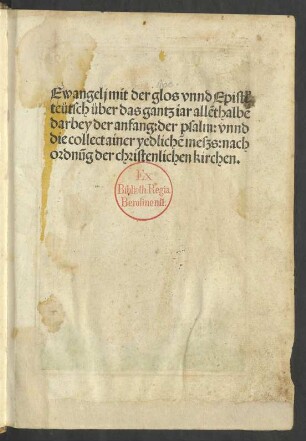 Ewangelj mit der glos vnnd Epistel
teütsch über das gantz iar allēthalbē
darbey der anfang: der psalm: vnnd
die collect ainer yedlichē meſʒs: nach
ordnūg der christenlichen kirchen.
Ex
Biblioth. Regia
Berolinenſi.